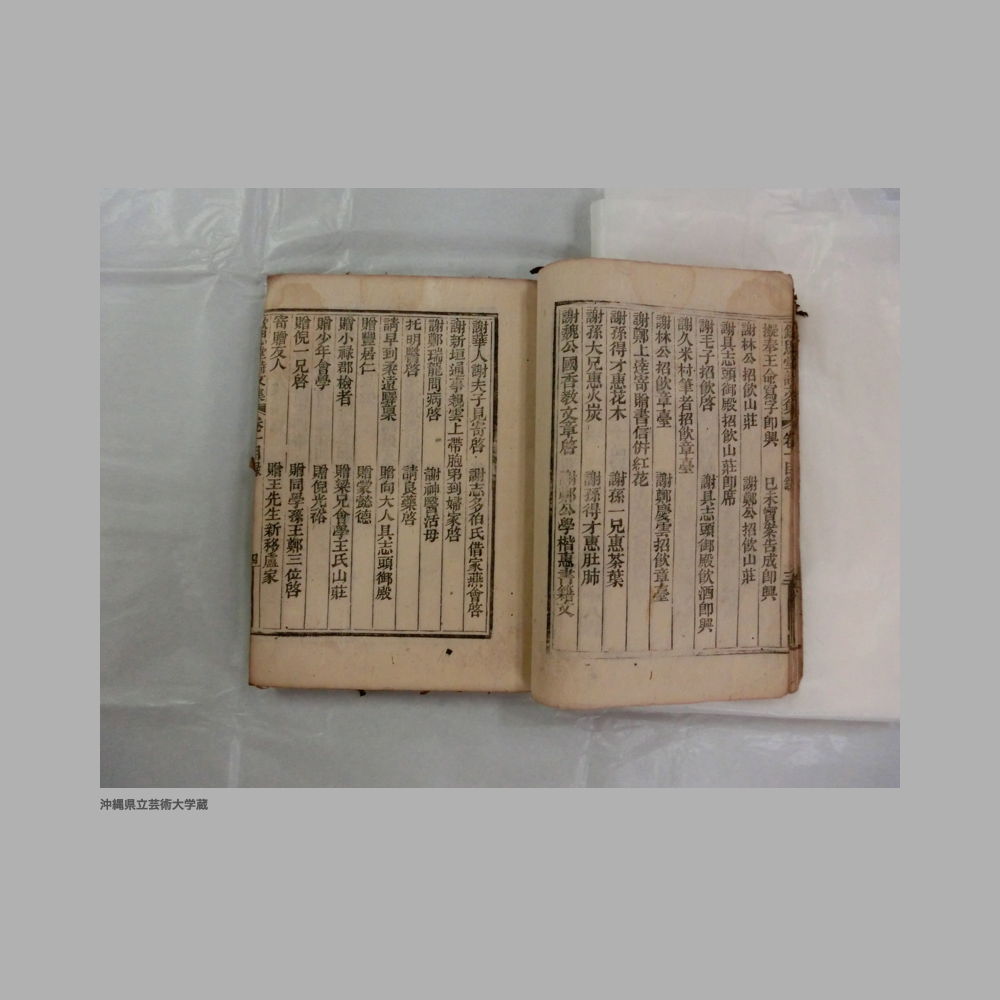 擬奉王命寫字即興　己未會案告成即興
謝林公招飲山莊　謝鄭公招飲山莊
謝具志頭御殿招飲山莊即席
謝毛子招飲啓　謝具志頭御殿飲酒即興
謝久米村筆者招飲章臺
謝林公招飲章臺　謝鄭慶雲招飲章臺
謝鄭上達寄贈書信併紅花
謝孫得才惠花木　謝孫一兄惠茶葉
謝孫大兄惠火炭　謝孫得才惠肚肺
謝魏公國香教文章啓　謝鄭公學楷惠書籍文
卷一目錄　三
謝華人謝夫子見寄啓　謝志多伯氏借家燕會啓
謝新垣通事親雲上帶胞弟到婦家啓
謝鄭瑞龍問病啓　謝神醫活母
托明醫啓　請良藥啓
請早到柔遠驛稟　贈向大人具志頭御殿
贈豐居仁　贈蒙懿德
贈小祿郡檢者　贈梁兄會學王氏山莊
贈少年會學　贈倪光裕
贈倪一兄啓　贈同學孫王鄭三位啓
寄贈友人　贈王先生新移盧家
堂詩文集　卷一目錄　四
沖縄県立芸術大学蔵